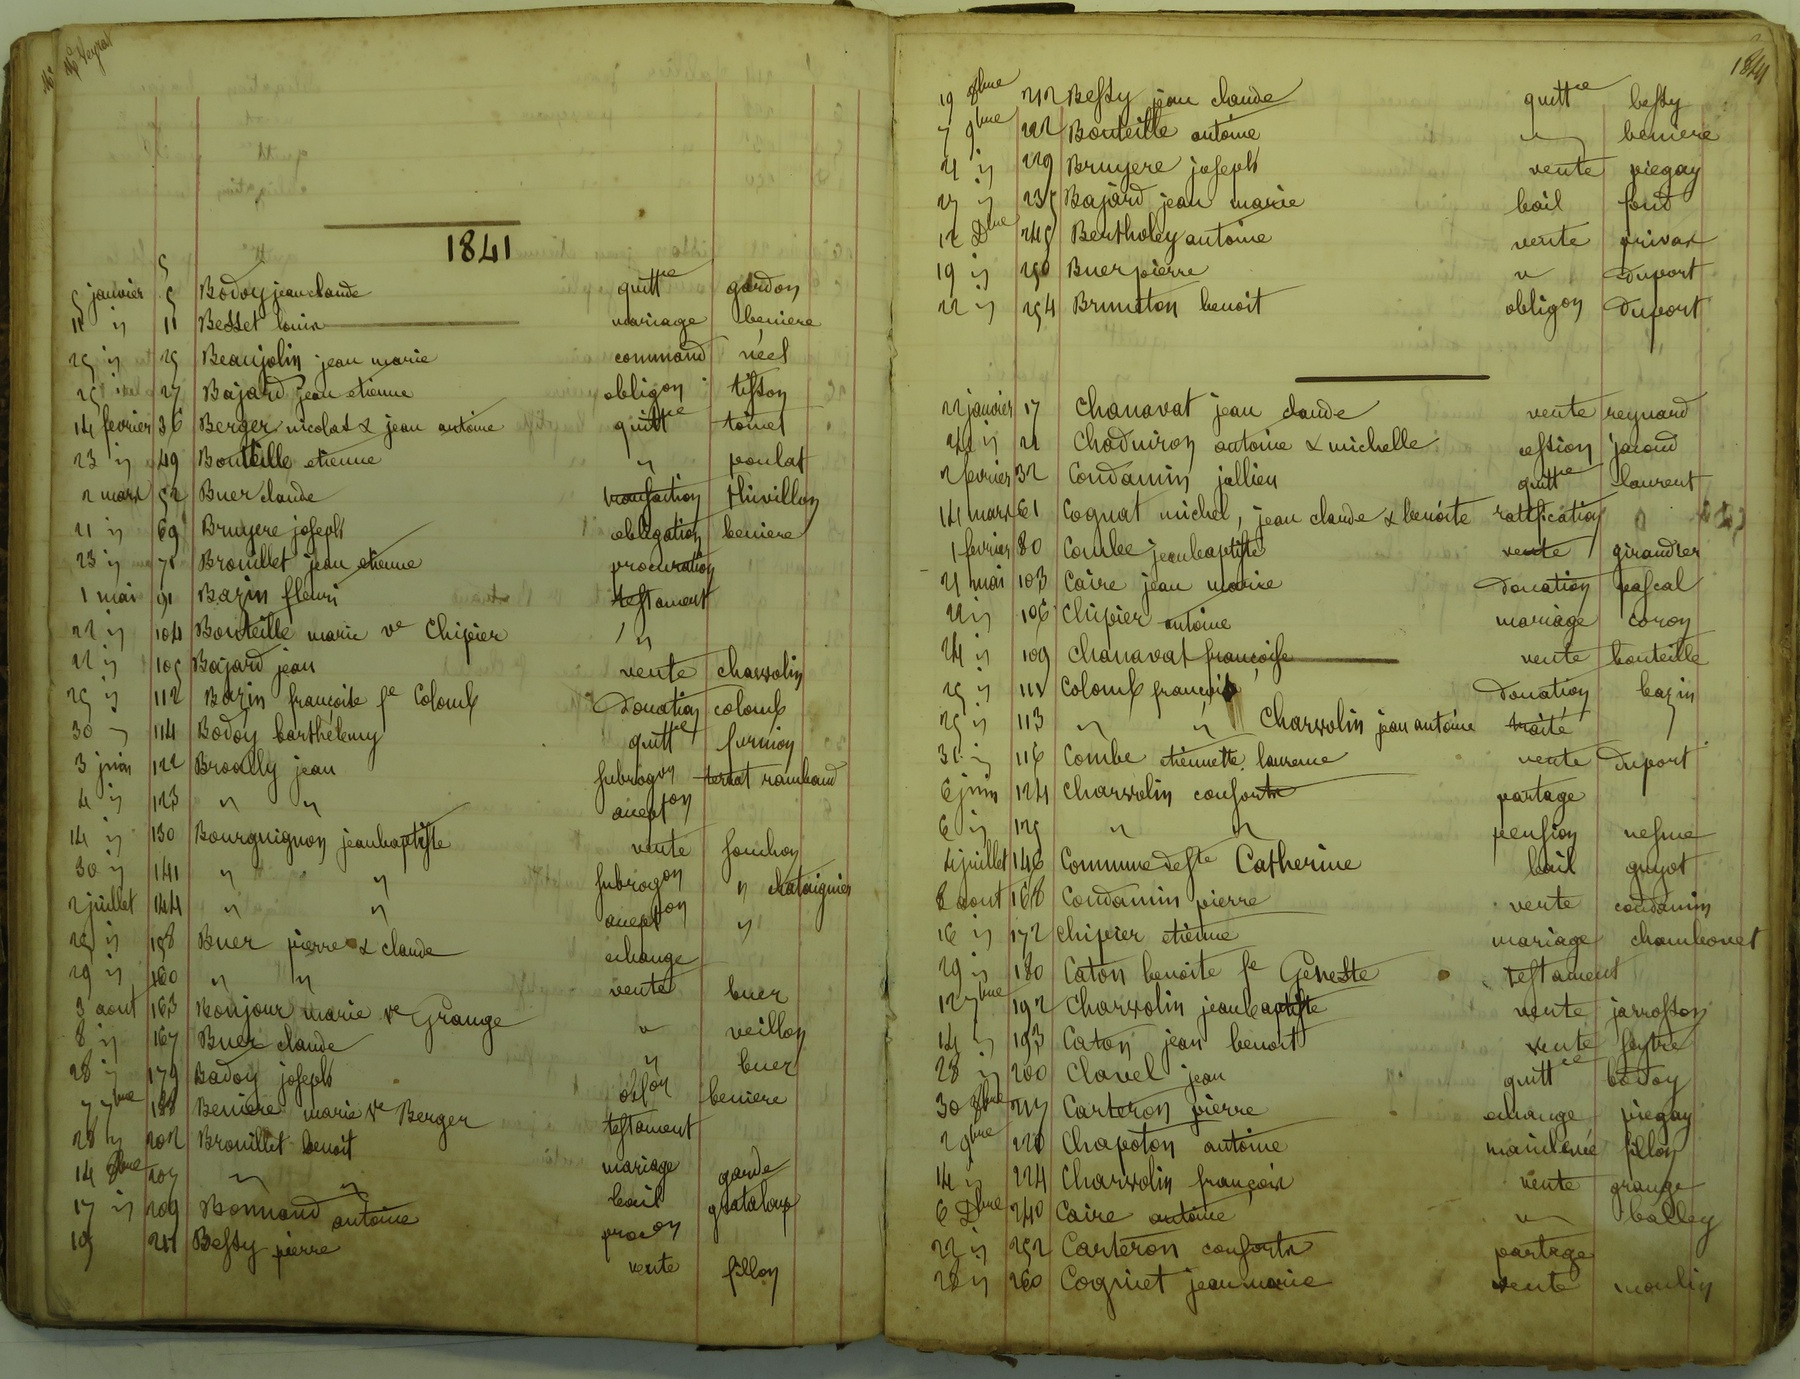 Me Veyrat
1841
5 janvier 5 Bodoy jean claude quittce gardon
11 Besset louis mariage beniere
25 25 Beaujolin jean marie command néel
25 27 Bajard jean etienne obligon tisson
14 fevrier 36 Berger nicolas & jean antoine quittce
23 49 Bouteille etienne " poulat
2 mars 52 Buer claude transaction thivillon
21 69 Bruyere joseph obligation beniere
23 Brouillet jean etienne procuration
1 mai 91 Bazin fleuri testament
22 104 Bouteille marie ve Chipier "
22 105 Bajard jean vente charvolin
25 112 Bazin françoise fe Colomb Donation colomb
30 114 Bodoy barthélemy quittce furnion
3 juin 122 Broally jean subrogon rambaud
4 123 " " accepton
14 130 Bourguignon jean baptiste vente souchon
30 141 " " subrogon " chataignier
2 juillet 144 " " accepton "
25 158 Buer pierre & claude echange
29 160 " " vente buer
3 aout 163 Bonjour marie ve Grange " veillon
8 167 Buer claude " buer
28 179 Badoy joseph oblon beniere
7 7bre 188 Beniere marie ve Berger testament
28 202 Brouillet benoit mariage garde
14 8bre 207 " " bail grataloup
17 209 Bonnand antoine procon
19 211 Bessy pierre vente fillon
1841
19 8bre 212 Bessy jean claude quittce bessy
7 9bre 222 Bouteille antoine " beniere
21 229 Bruyere joseph vente piegay
27 235 Bajard jean marie bail fond
12 Dbre 245 Bertholey antoine vente privas
19 250 Buer pierre " Duport
22 254 Bruneton benoit obligon Duport
22 janvier 17 Chanavat jean claude vente reynard
24 21 Chaduiron antoine & michelle cession jacoud
2 fevrier 32 Condamin jullien quittce laurent
14 mars 61 Cognat michel, jean claude & benoite ratification
1 fevrier 80 Combe jean baptiste vente giraudier
21 mai 103 Caire jean marie Donation pascal
22 106 Chipier antoine mariage coron
24 109 Chanavat françoise vente bouteille
25 112 Colomb françois Donation bazin
25 113 " " Charvolin jean antoine traité
31 116 Combe etiennette laurence vente Duport
6 juin 124 Charvolin consorts partage
6 125 " " pension nesme
4 juillet 146 Commune de ste Catherine bail guyot
8 aout 168 Condamin pierre vente condamin
16 172 Chipier etienne mariage chambonet
29 180 Caton benoite fe Geneste testament
12 7bre 192 Charvolin jean baptiste vente jarrosson
14 193 Caton jean benoit vente feytre
28 200 Clavel jean quittce bodoy
30 8bre 217 Carteron pierre echange piegay
2 9bre 220 Chapoton antoine mainlevée fillon
14 224 Charvolin françois vente grange
6 Dbre 240 Caire antoine " balley
22 252 Carteron consorts partage
28 260 Cogniet jean marie vente moulin